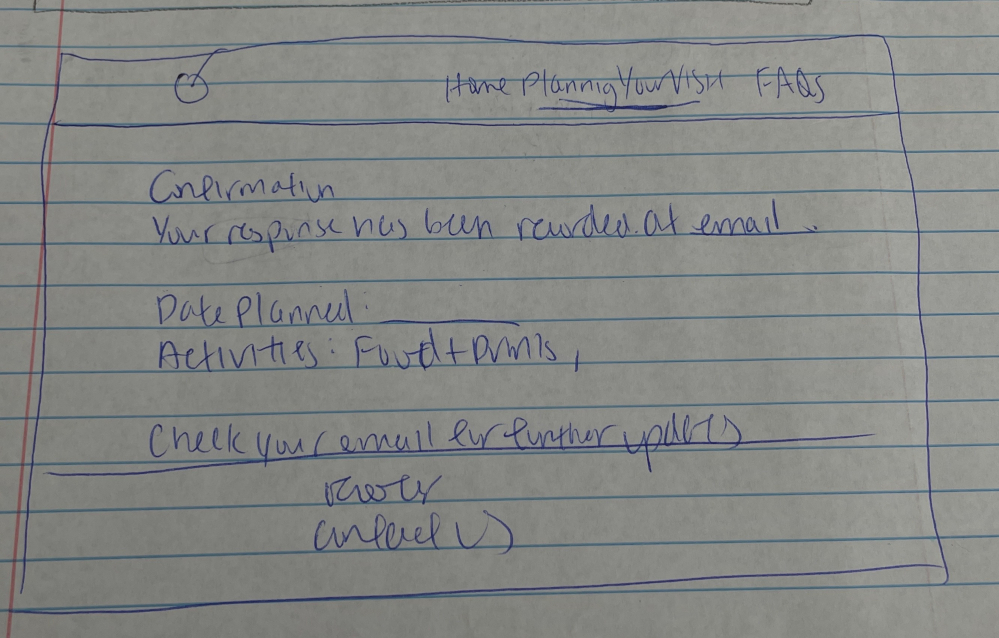 Home Planning Your Visit FAQs
Confirmation
Your response has been recorded at email.
Date Planned:
Activities: Food + Drinks,
Check your email for further updates
contact us